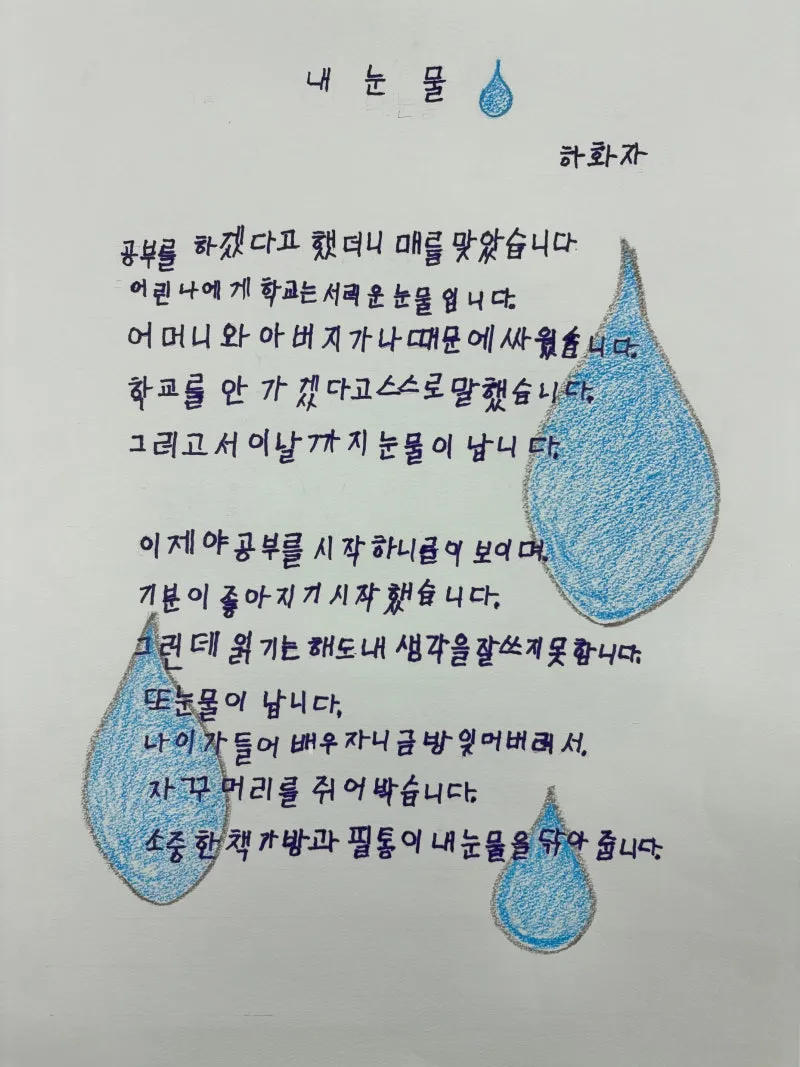 내 눈 물
하화자
공부를 하겠다고 했더니 매를 맞았습니다
어린 나에게 학교는 서러운 눈물입니다.
어머니와 아버지가 나 때문에 싸웠습니다.
학교를 안 가겠다고 스스로 말했습니다.
그리고서 이날까지 눈물이 납니다.
이제야 공부를 시작하니 글이 보이며,
기분이 좋아지기 시작했습니다.
그런데 읽기는 해도 내 생각을 잘 쓰지 못합니다.
또 눈물이 납니다,
나이가 들어 배우자니 금방 잊어버려서.
자꾸 머리를 쥐어박습니다.
소중한 책가방과 필통이 내 눈물을 닦아 줍니다.